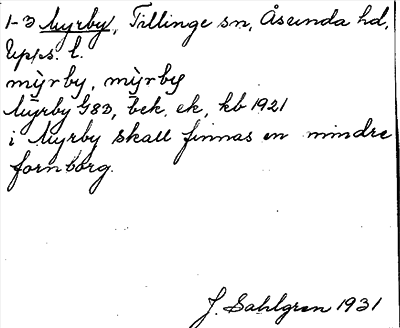 1-3 Myrby, Tillinge sn, Åsunda hd,
Upps. l.
mỳrby, mỳrby
Myrby G83, bek. ek, kb 1921
i Myrby skall finnas en mindre
fornborg.
J. Sahlgren 1931